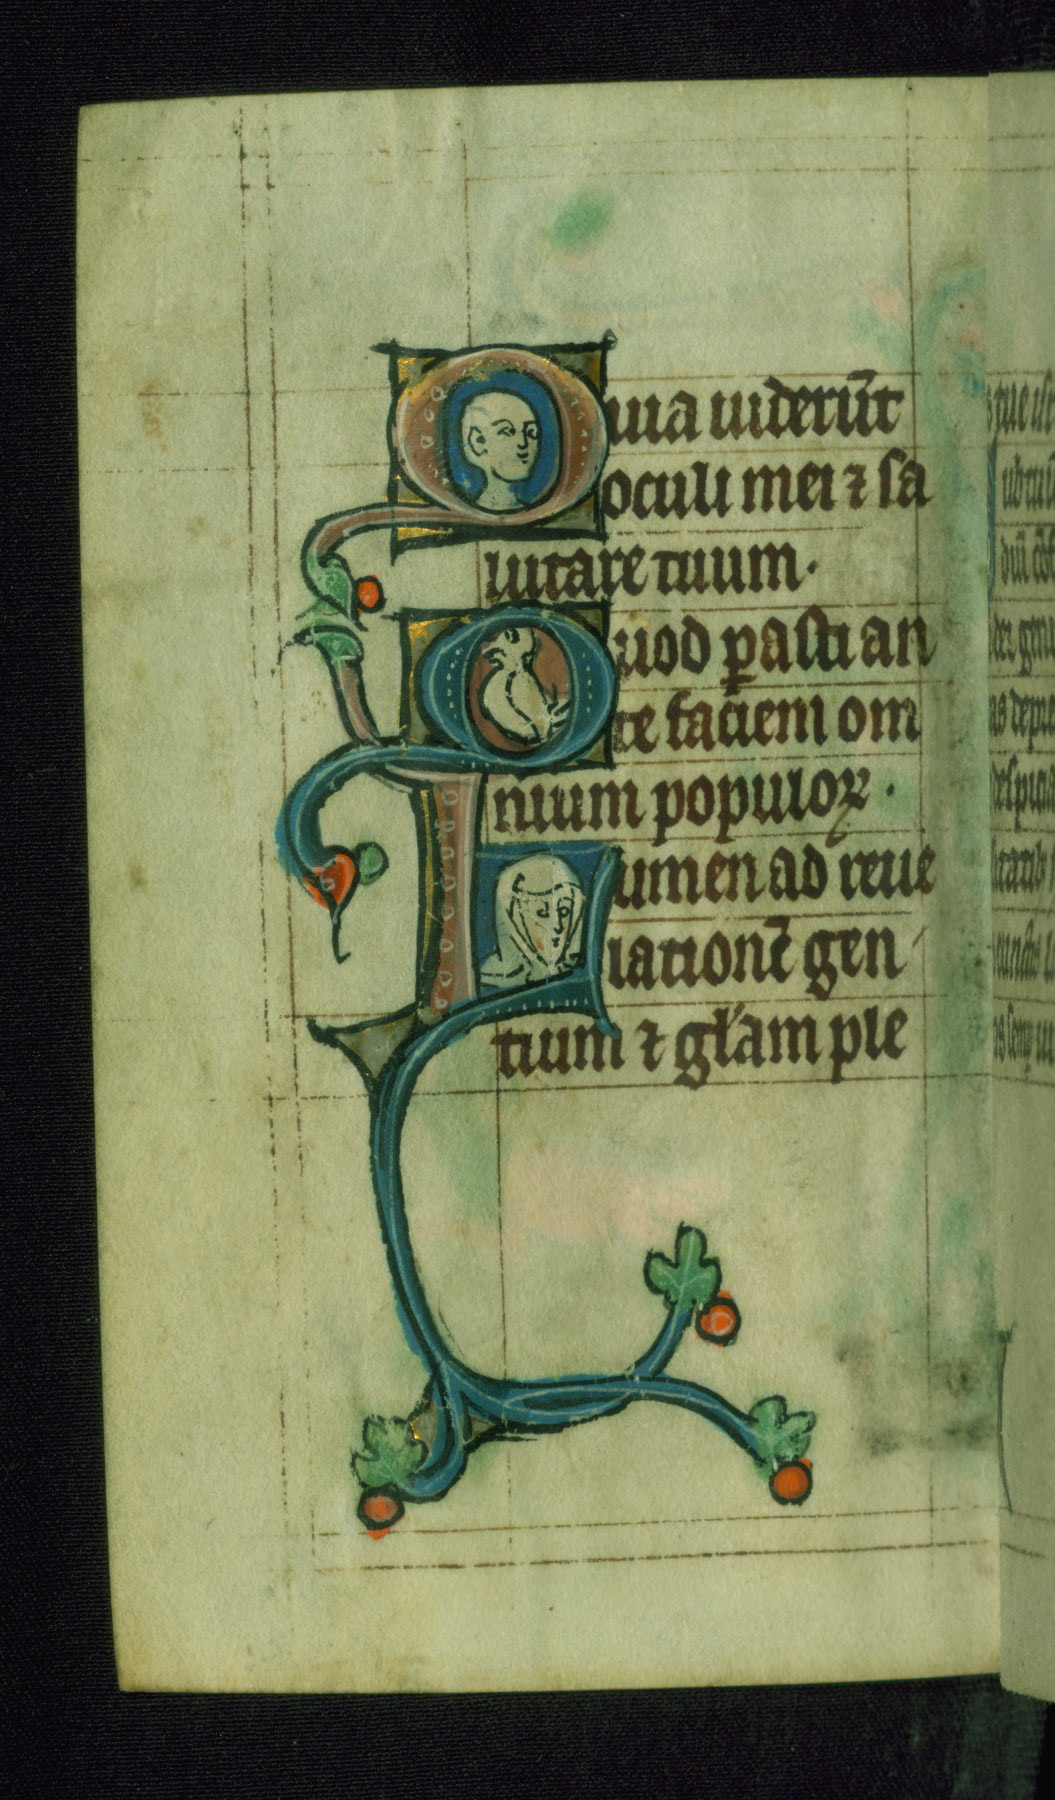 Quia uiderūt
oculi mei ⁊ sa
lutare tuum·
Quod ꝑasti an
te faciem om
nium populoꝝ·
Lumen ad reue
lationē gen
tium ⁊ gl̃am ple